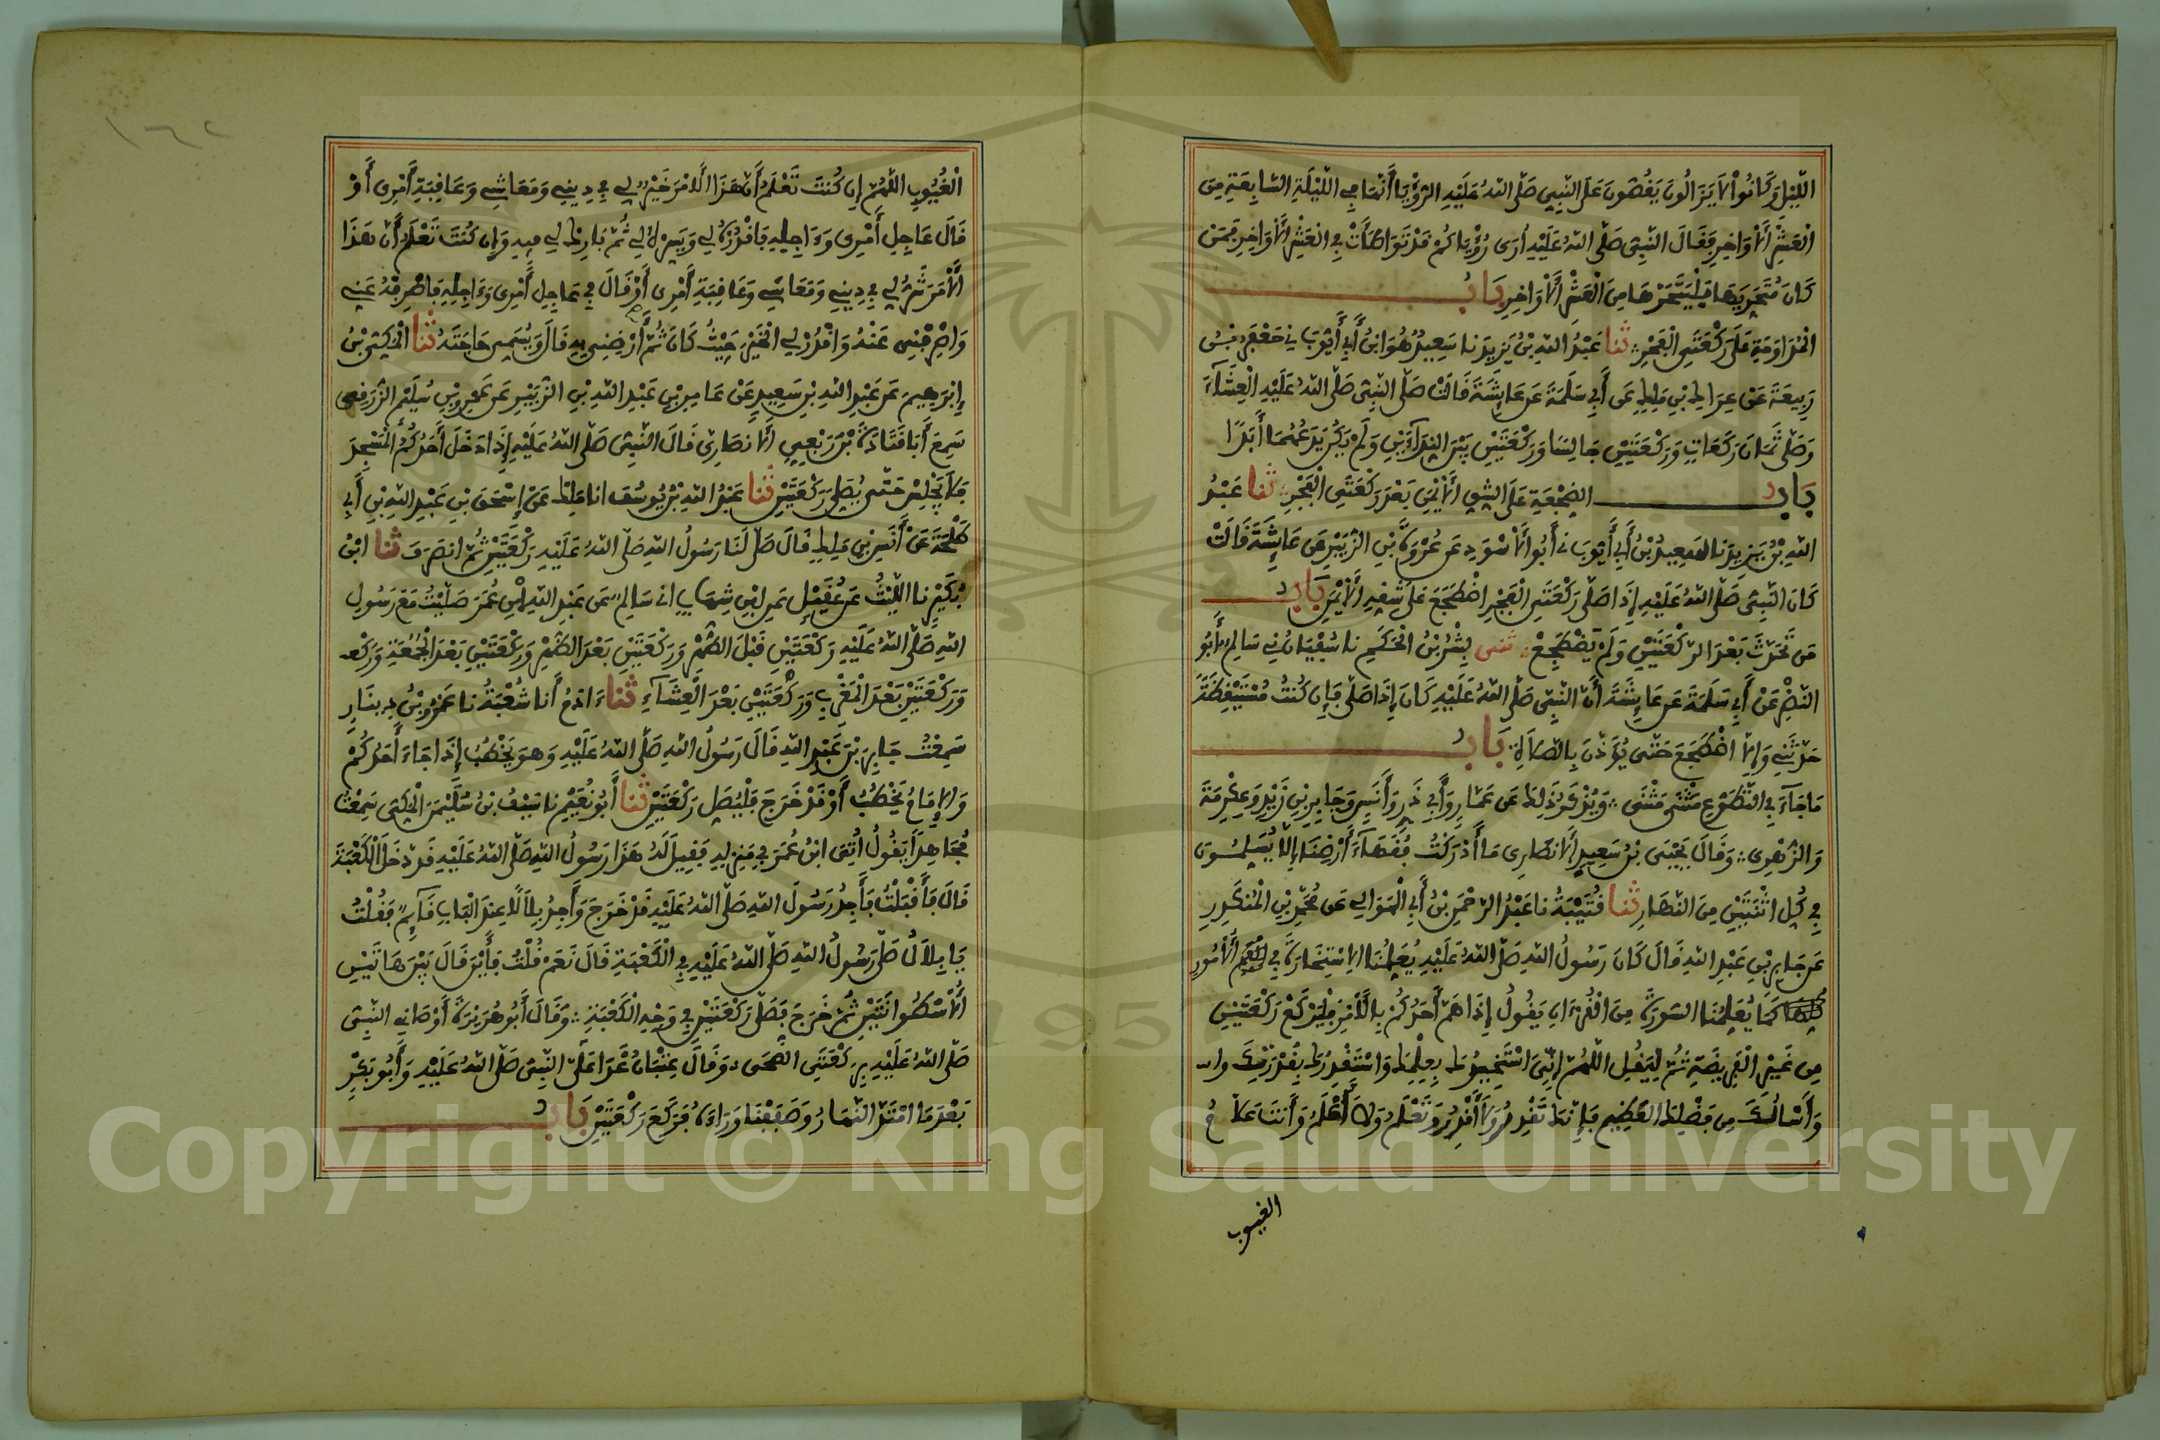 الليل وكانوا لا يزالون يقصون على النبي صلى الله عليه الرؤيا أنها في الليلة السابعة من
العشر الأواخر فقال النبي صلى الله عليه أرى رؤياكم قد تواطأت في العشر الأواخر فمن
كان متحريها فليتحرها من العشر الأواخر باب
المداومة على ركعتي الفجر ثنا عبد الله بن يزيد نا سعيد هو ابن أبي أيوب ني جعفر بن
ربيعة عن عراك بن ملك عن أبي سلمة عن عايشة قالت صلى النبي صلى الله عليه العشاء
وصلى ثمان ركعات وركعتين جالسا وركعتين بين النداءين ولم يكن يدعهما أبدا
باب الضجعة على الشق الأيمن بعد ركعتي الفجر ثنا عبد
الله بن يزيد نا سعيد بن أبي أيوب ني أبو الأسود عن عروة بن الزبير عن عايشة قالت
كان النبي صلى الله عليه إذا صلى ركعتي الفجر اضطجع على شقه الأيمن باب
من تحدث بعد الركعتين ولم يضطجع ثني بشر بن الحكم نا سفيان ني سالم أبو
النضر عن أبي سلمة عن عايشة أن النبي صلى الله عليه كان إذا صلى فإن كنت مستيقظة
حدثني وإلا اضطجع حتى يؤذن بالصلاة باب
ما جاء في التطوع مثنى مثنى ويذكر ذلك عن عمار وأبي ذر وأنس وجابر بن زيد وعكرمة
والزهري وقال يحيى بن سعيد الأنصاري ما أدركت فقهاء أرضنا إلا يسلمون
في كل اثنتين من النهار ثنا قتيبة نا عبد الرحمن بن أبي الموالي عن محمد بن المنكدر
عن جابر بن عبد الله قال كان رسول الله صلى الله عليه يعلمنا الاستخارة في الأمور
كلها كما يعلمنا السورة من القرءان يقول إذا هم أحدكم بالأمر فليركع ركعتين
من غير الفريضة ثم ليقل اللهم إني أستخيرك بعلمك وأستقدرك بقدرتك
وأسألك من فضلك العظيم فإنك تقدر ولا أقدر وتعلم ولا أعلم وأنت علام
الغيوب
١٦٢
الغيوب اللهم إن كنت تعلم أن هذا الأمر خير لي في ديني ومعاشي وعاقبة أمري أو
قال عاجل أمري وءاجله فاقدره لي ويسره لي ثم بارك لي فيه وإن كنت تعلم أن هذا
الأمر شر لي في ديني ومعاشي وعاقبة أمري أو قال في عاجل أمري وءاجله فاصرفه عني
واصرفني عنه واقدر لي الخير حيث كان ثم أرضني به قال ويسمي حاجته ثنا المكي بن
إبرهيم عن عبد الله بن سعيد عن عامر بن عبد الله بن الزبير عن عمرو بن سليم الزرقي
سمع أبا قتادة بن ربعي الأنصاري قال النبي صلى الله عليه إذا دخل أحدكم المسجد
فلا يجلس حتى يصلي ركعتين ثنا عبد الله بن يوسف انا ملك عن إسحق بن عبد الله بن أبي
طلحة عن أنس بن ملك قال صلى لنا رسول الله صلى الله عليه ركعتين ثم انصرف ثنا ابن
بكير نا الليث عن عقيل عن ابن شهاب اني سالم عن عبد الله بن عمر صليت مع رسول
الله صلى الله عليه ركعتين قبل الظهر وركعتين بعد الظهر وركعتين بعد الجمعة وركعـ
وركعتين بعد المغرب وركعتين بعد العشاء ثنا ءادم أنا شعبة نا عمرو بن دينار
سمعت جابر بن عبد الله قال رسول الله صلى الله عليه وهو يخطب إذا جاء أحدكم
والإمام يخطب أو قد خرج فليصل ركعتين ثنا أبو نعيم نا سيف بن سليمن المكي سمعت
مجاهدا يقول أتي ابن عمر في منزله فقيل له هذا رسول الله صلى الله عليه قد دخل الكعبة
قال فأقبلت فأجد رسول الله صلى الله عليه قد خرج وأجد بلالا عند الباب قائم فقلت
يا بلال صلى رسول الله صلى الله عليه في الكعبة قال نعم قلت فأين قال بين هاتين
الأسطوانتين ثم خرج فصلى ركعتين في وجه الكعبة وقال أبو هريرة أوصاني النبي
صلى الله عليه بركعتي الضحى وقال عتبان غدا علي النبي صلى الله عليه وأبو بكر
بعد ما امتد النهار وصففنا وراءه فركع ركعتين باب
Copyright © King Saud University
1957